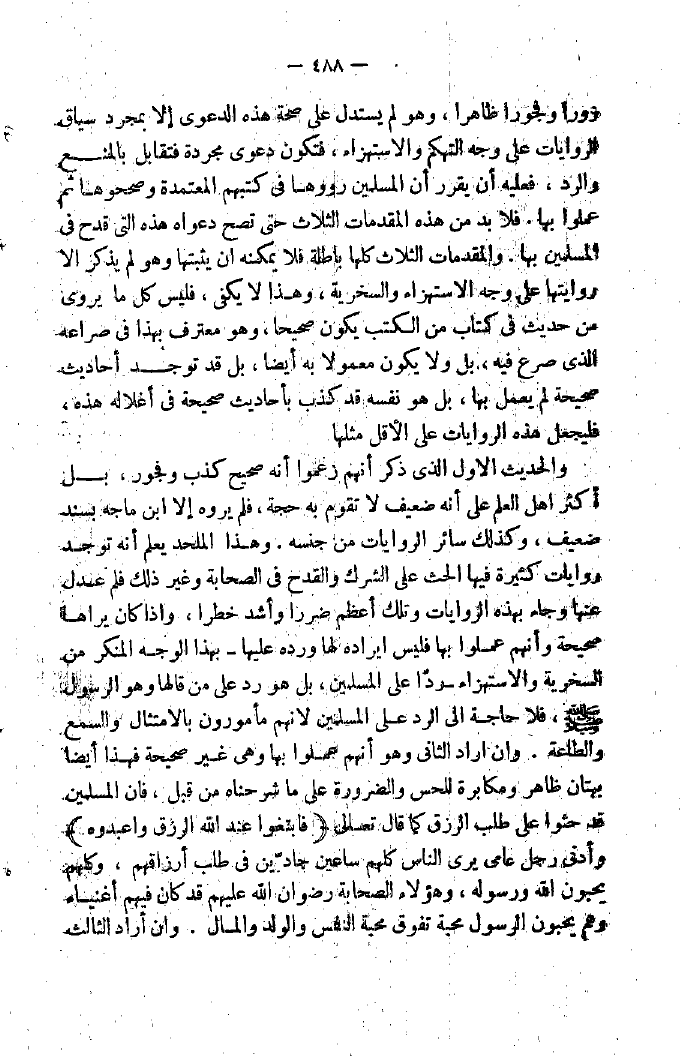 — ٤٨٨ —
زورا وفجورا ظاهرا ، وهو لم يستدل على صحة هذه الدعوى إلا بمجرد سياق
الروايات على وجه التهكم والاستهزاء ، فتكون دعوى مجردة فتقابل بالمنع
والرد ، فعليه أن يقرر أن المسلمين رووها فى كتبهم المعتمدة وصححوها ثم
عملوا بها . فلا بد من هذه المقدمات الثلاث حتى تصح دعواه هذه التى قدح فى
المسلمين بها . والمقدمات الثلاث كلها باطلة فلا يمكنه ان يثبتها وهو لم يذكر الا
روايتها على وجه الاستهزاء والسخرية ، وهذا لا يكفى ، فليس كل ما يروى
من حديث فى كتاب من الكتب يكون صحيحا ، وهو معترف بهذا فى صراعه
الذى صرع فيه ، بل ولا يكون معمولا به أيضا ، بل قد توجد أحاديث
صحيحة لم يعمل بها ، بل هو نفسه قد كذب بأحاديث صحيحة فى أغلاله هذه ،
فليجعل هذه الروايات على الأقل مثلها
والحديث الاول الذى ذكر أنهم زعموا أنه صحيح كذب وفجور ، بل
أكثر اهل العلم على أنه ضعيف لا تقوم به حجة ، فلم يروه إلا ابن ماجه بسند
ضعيف ، وكذلك سائر الروايات من جنسه . وهذا الملحد يعلم أنه توجد
روايات كثيرة فيها الحث على الشرك والقدح فى الصحابة وغير ذلك فلم عدل
عنها وجاء بهذه الروايات وتلك أعظم ضررا وأشد خطرا ، واذا كان يراها
صحيحة وأنهم عملوا بها فليس ايراده لها ورده عليها ـ بهذا الوجه المنكر من
السخرية والاستهزاء ـ ردّا على المسلمين ، بل هو رد على من قالها وهو الرسول
ﷺ ، فلا حاجة الى الرد على المسلمين لانهم مأمورون بالامتثال والسمع
والطاعة . وان اراد الثانى وهو أنهم عملوا بها وهى غير صحيحة فهذا أيضا
بهتان ظاهر ومكابرة للحس والضرورة على ما شرحناه من قبل ، فان المسلمين
قد حثوا على طلب الرزق كما قال تعالى ﴿ فابتغوا عند الله الرزق واعبدوه ﴾
وأدنى رجل عامى يرى الناس كلهم ساعين جادّين فى طلب أرزاقهم ، وكلهم
يحبون الله ورسوله ، وهؤلاء الصحابة رضوان الله عليهم قد كان فيهم أغنياء
وهم يحبون الرسول محبة تفوق محبة النفس والولد والمال . وان أراد الثالث